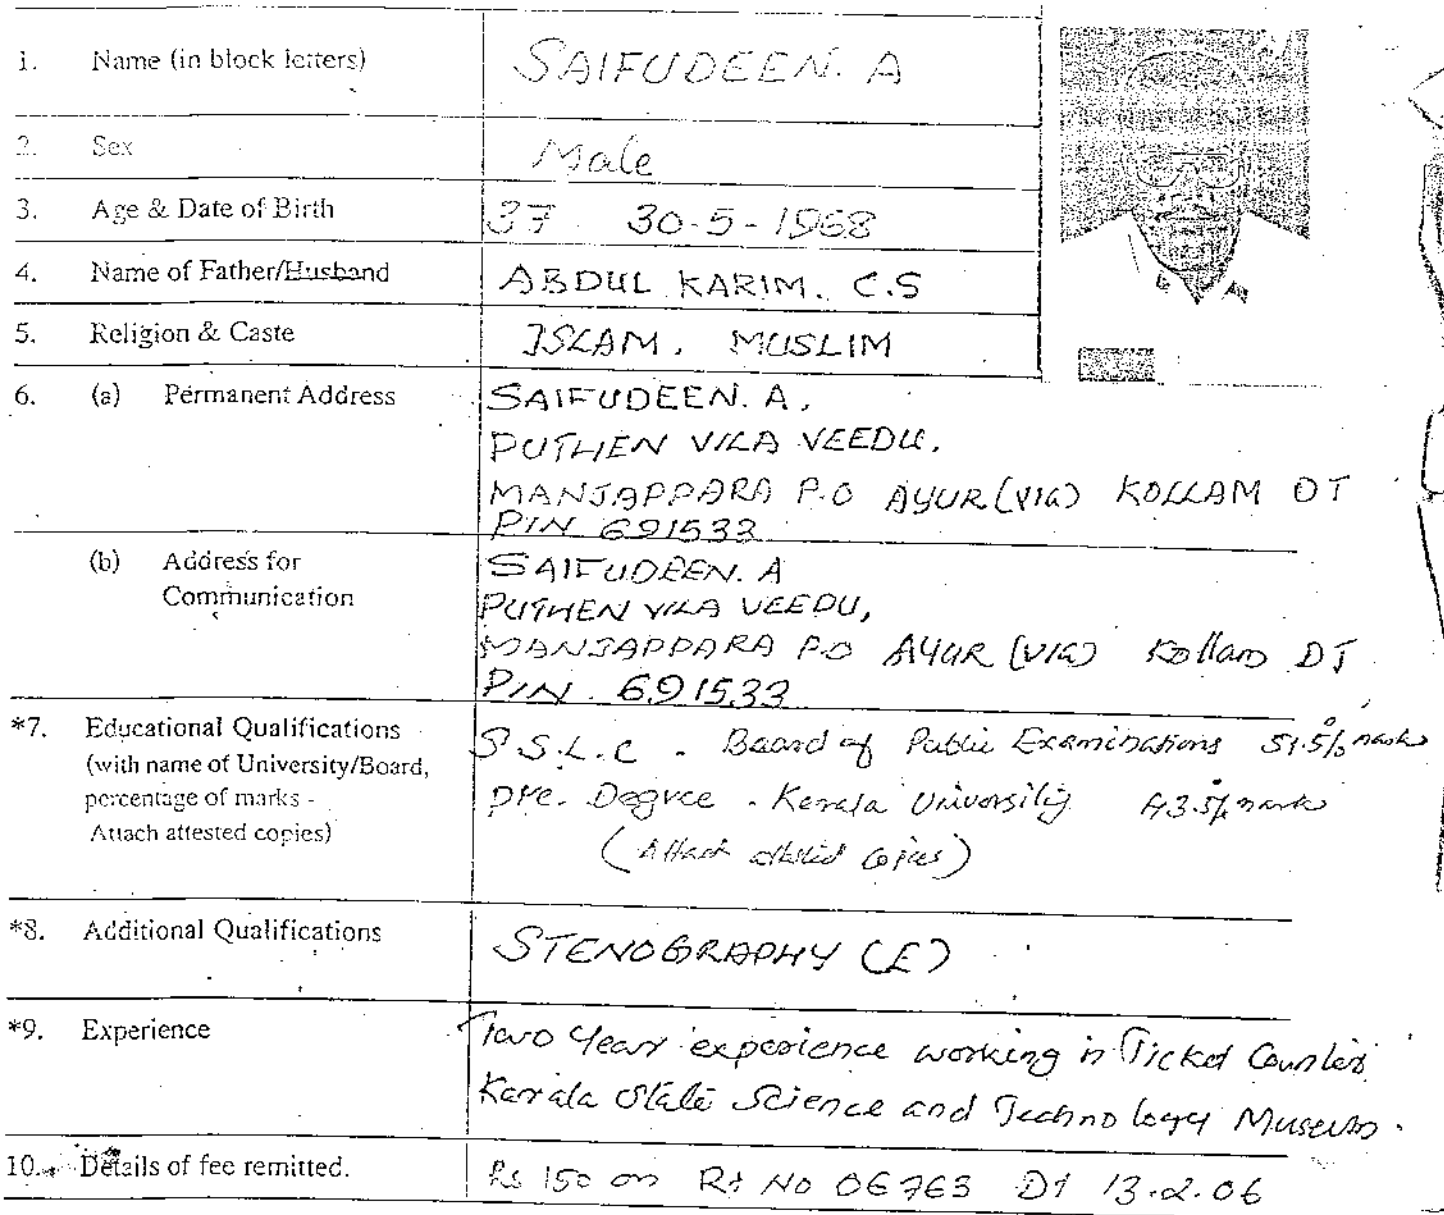 1. Name (in block letters) SAIFUDEEN. A
2. Sex Male
3. Age & Date of Birth 37 30-5-1968
4. Name of Father/Husband ABDUL KARIM. C.S
5. Religion & Caste ISLAM, MUSLIM
6. (a) Permanent Address SAIFUDEEN. A,
PUTHEN VILA VEEDU,
MANJAPPARA P.O AYUR (VIA) KOLLAM DT
PIN 691533
(b) Address for SAIFUDEEN. A
Communication PUTHEN VILA VEEDU,
MANJAPPARA P.O AYUR (VIA) Kollam DT
PIN. 691533
*7. Educational Qualifications S.S.L.C - Board of Public Examinations 51.5% marks
(with name of University/Board,
percentage of marks - Pre. Degree - Kerala University 43.5% marks
Attach attested copies) (Attach attested copies)
*8. Additional Qualifications STENOGRAPHY (E)
*9. Experience Two Year experience working in Ticket Counter
Kerala State Science and Technology Museum.
10. Details of fee remitted. Rs 150 on Rt No 06763 Dt 13.2.06